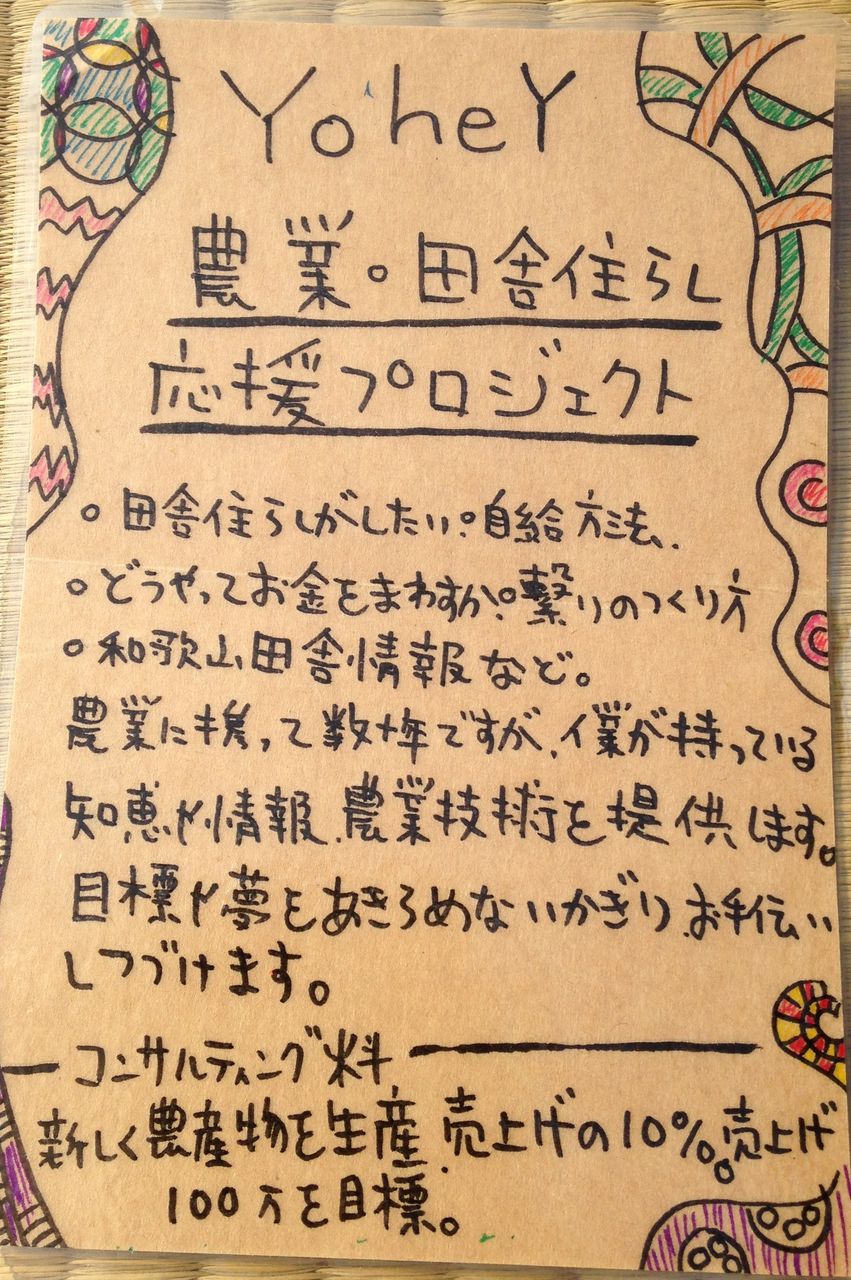 YoheY
農業。田舎住らし
応援プロジェクト
。田舎住らしがしたい。自給方法、
。どうやってお金をまわすか。繋りのつくり方
。和歌山田舎情報など。
農業に携って数十年ですが、僕が持っている
知恵や情報、農業技術を提供します。
目標や夢をあきらめないかぎり、お手伝い
しつづけます。
コンサルティング料
新しく農産物を生産、売上げの10%。売上げ
100万を目標。